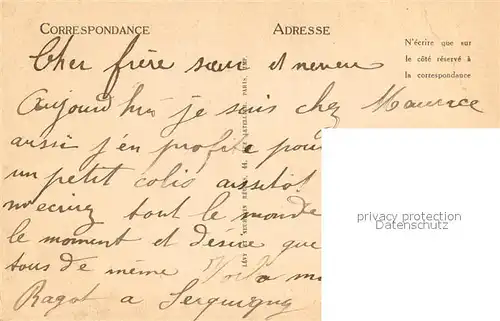 CORRESPONDANCE
ADRESSE
N'écrire que sur
le côté réservé à
la correspondance
Cher frère sœur et neveu
Aujourd'hui je suis chez Maurice
aussi j'en profite pour
un petit colis aussitôt
m'ecrirez tout le monde
le moment et désire que
tous de même Voila m
Ragot a Serquigny
privacy protection
Datenschutz